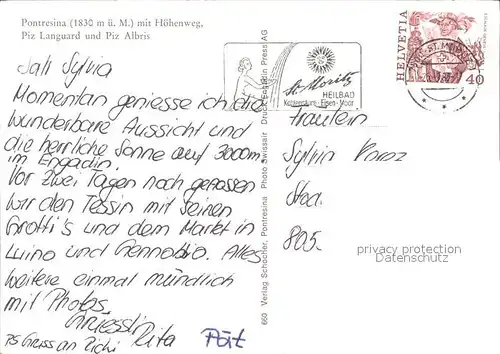 Pontresina (1830 m ü. M.) mit Höhenweg,
Piz Languard und Piz Albris
Sali Sylvia
Momentan geniesse ich die
wunderbare Aussicht und
die herrliche Sonne auf 3000m
im Engadin.
Vor zwei Tagen noch genossen
wir den Tessin mit seinen
Grotti's und dem Markt in
Luino und Cannobio. Alles
weitere einmal mündlich
mit Photos.
Griessli
Rita
PS Gruss an
660 Verlag Schocher, Pontresina Photo Swissair Druck: Engadin Press AG
St. Moritz
HEILBAD
Kohlensäure-Eisen-Moor
HELVETIA
40
Fräulein
Sylvia
805
privacy protection
Datenschutz